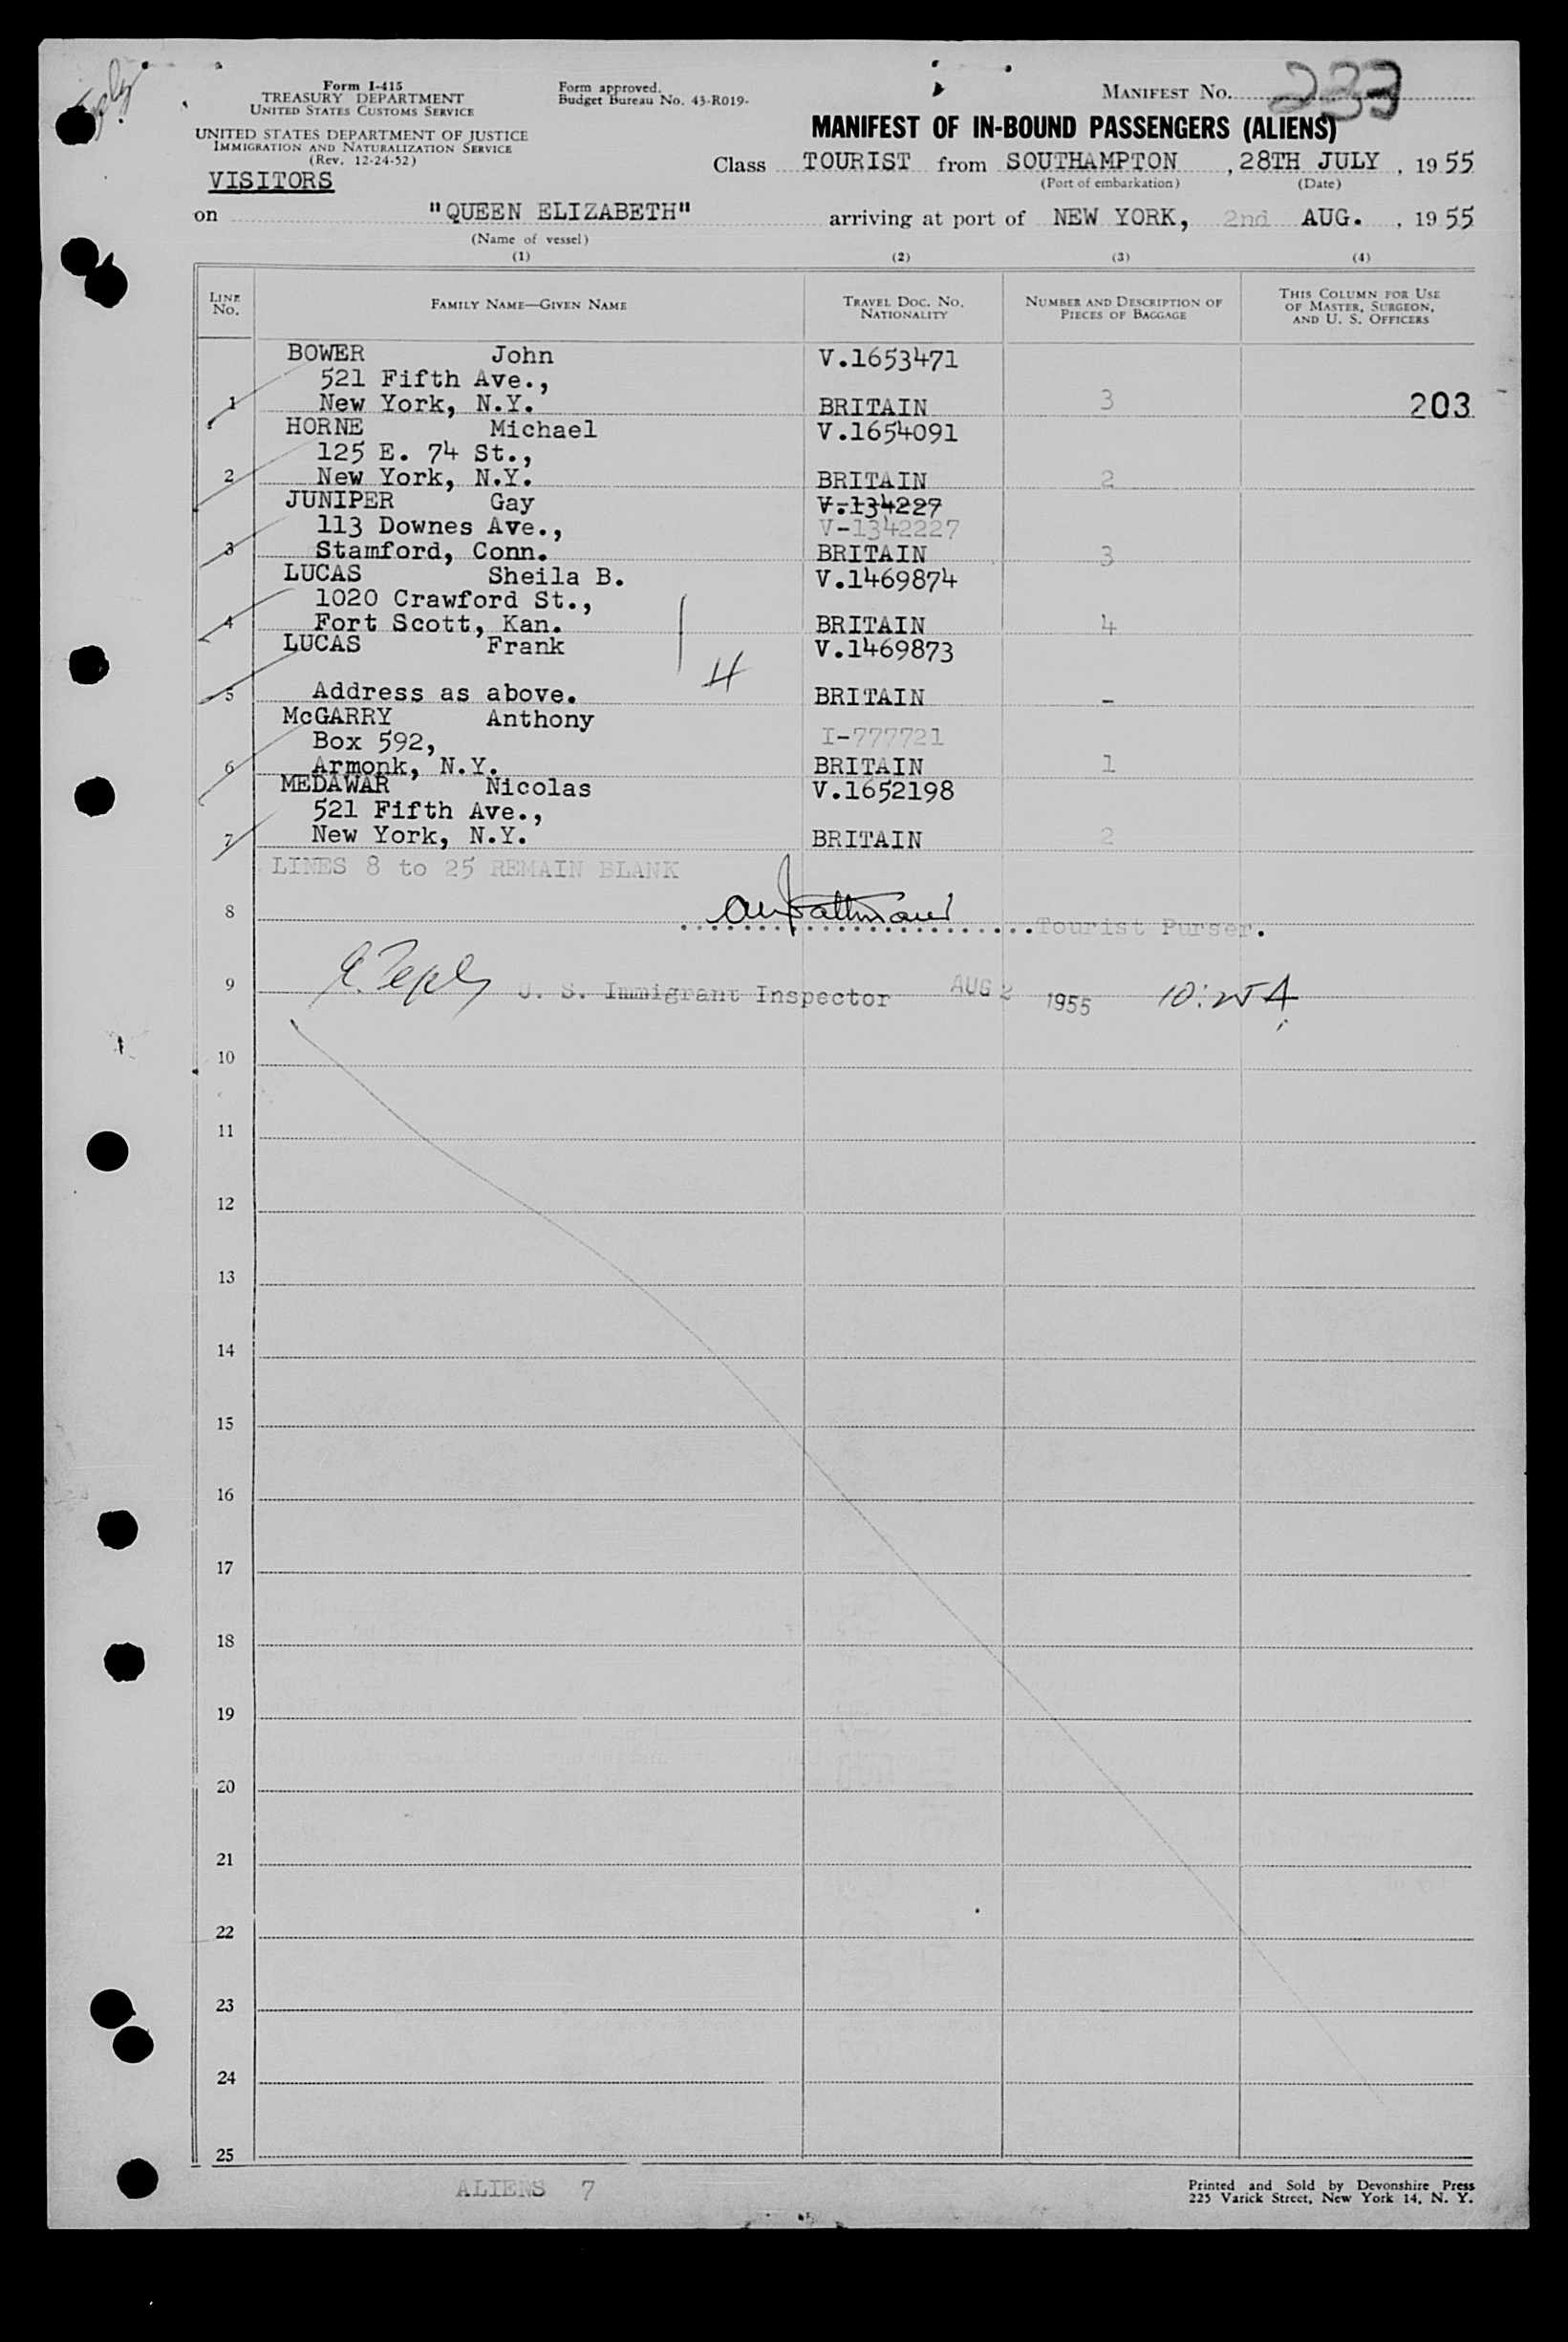 Form I-415
TREASURY DEPARTMENT
UNITED STATES CUSTOMS SERVICE
UNITED STATES DEPARTMENT OF JUSTICE
IMMIGRATION AND NATURALIZATION SERVICE
(Rev. 12-24-52)
VISITORS
Form approved.
Budget Bureau No. 43-R019-
MANIFEST No. 233
MANIFEST OF IN-BOUND PASSENGERS (ALIENS)
Class TOURIST from SOUTHAMPTON, 28TH JULY, 1955
(Port of embarkation) (Date)
on "QUEEN ELIZABETH" arriving at port of NEW YORK, 2nd AUG., 1955
(Name of vessel)
(1) (2) (3) (4)
LINE No. FAMILY NAME—GIVEN NAME TRAVEL DOC. NO. NATIONALITY NUMBER AND DESCRIPTION OF PIECES OF BAGGAGE THIS COLUMN FOR USE OF MASTER, SURGEON, AND U. S. OFFICERS
BOWER John V.1653471
521 Fifth Ave.,
1 New York, N.Y. BRITAIN 3 203
HORNE Michael V.1654091
125 E. 74 St.,
2 New York, N.Y. BRITAIN 2
JUNIPER Gay V.134227
113 Downes Ave., V-1342227
3 Stamford, Conn. BRITAIN 3
LUCAS Sheila B. V.1469874
1020 Crawford St.,
4 Fort Scott, Kan. BRITAIN 4
LUCAS Frank V.1469873
4
5 Address as above. BRITAIN -
McGARRY Anthony
Box 592, I-777721
6 Armonk, N.Y. BRITAIN 1
MEDAWAR Nicolas V.1652198
521 Fifth Ave.,
7 New York, N.Y. BRITAIN 2
LINES 8 to 25 REMAIN BLANK
8 Tourist Purser.
9 U. S. Immigrant Inspector AUG 2 1955 10:25 A
10
11
12
13
14
15
16
17
18
19
20
21
22
23
24
25
ALIENS 7
Printed and Sold by Devonshire Press
225 Varick Street, New York 14, N. Y.